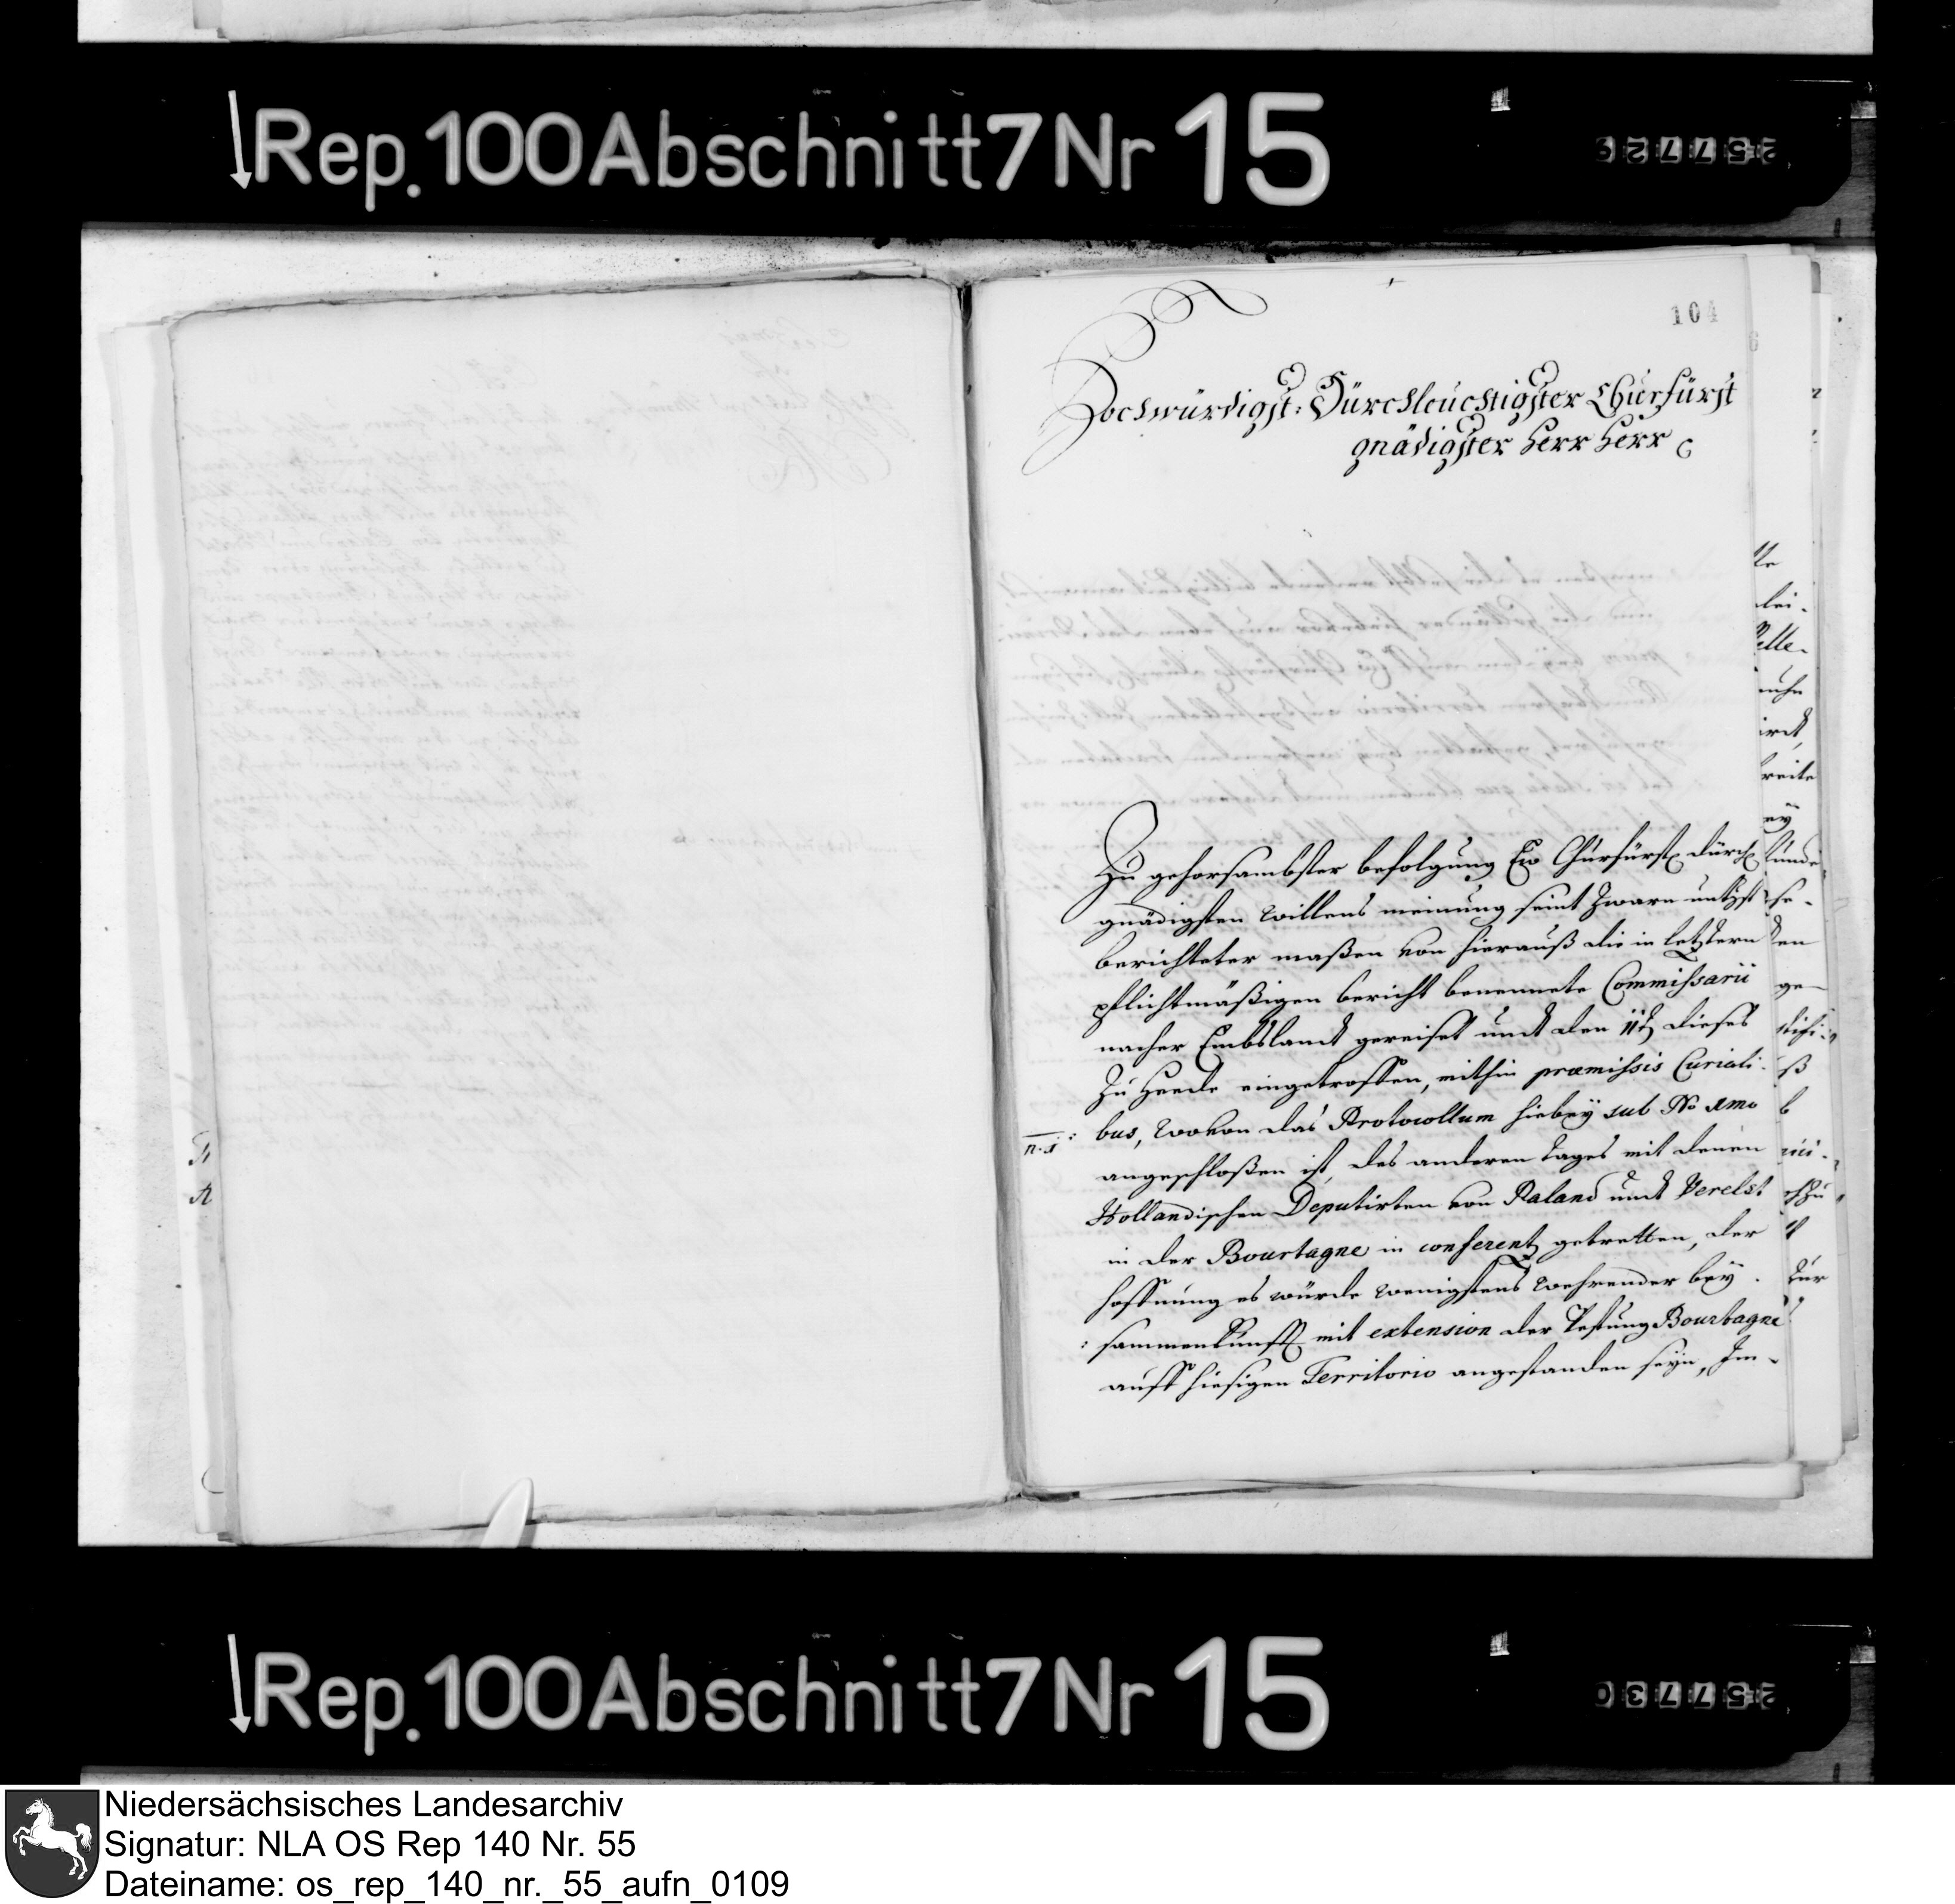 Rep. 100 Abschnitt 7 Nr 15
257729
104
Hochwürdigst: Dürchleuchtigster Churfürst
gnädigster Herr Herr
Zu gehorsambster befolgung Ew Chürfürstl dürchl
gnädigsten willens meinung seint zwarn
berichteter maßen von hierauß die in letztern
pflichtmäßigen bericht benennete Commissarii
nacher Embslandt gereiset undt den 11t dieses
Zu Heede eingetroffen, mithin præmissis Curiali-
n. 1: bus, wovon das Protocollum hiebeÿ sub No 1mo
angeschloßen ist, des anderen tages mit denen
Hollandischen Deputirten von Raland undt Verelst
in der Bourtagne in conferentz getretten, der
hoffnung es würde wenigstens wehrender beÿ-
sammenkunfft mit extension der Vestung Bourtagne
auff hiesigen Territorio angestanden seÿn, Im-
Rep. 100 Abschnitt 7 Nr 15
257730
Niedersächsisches Landesarchiv
Signatur: NLA OS Rep 140 Nr. 55
Dateiname: os_rep_140_nr._55_aufn_0109